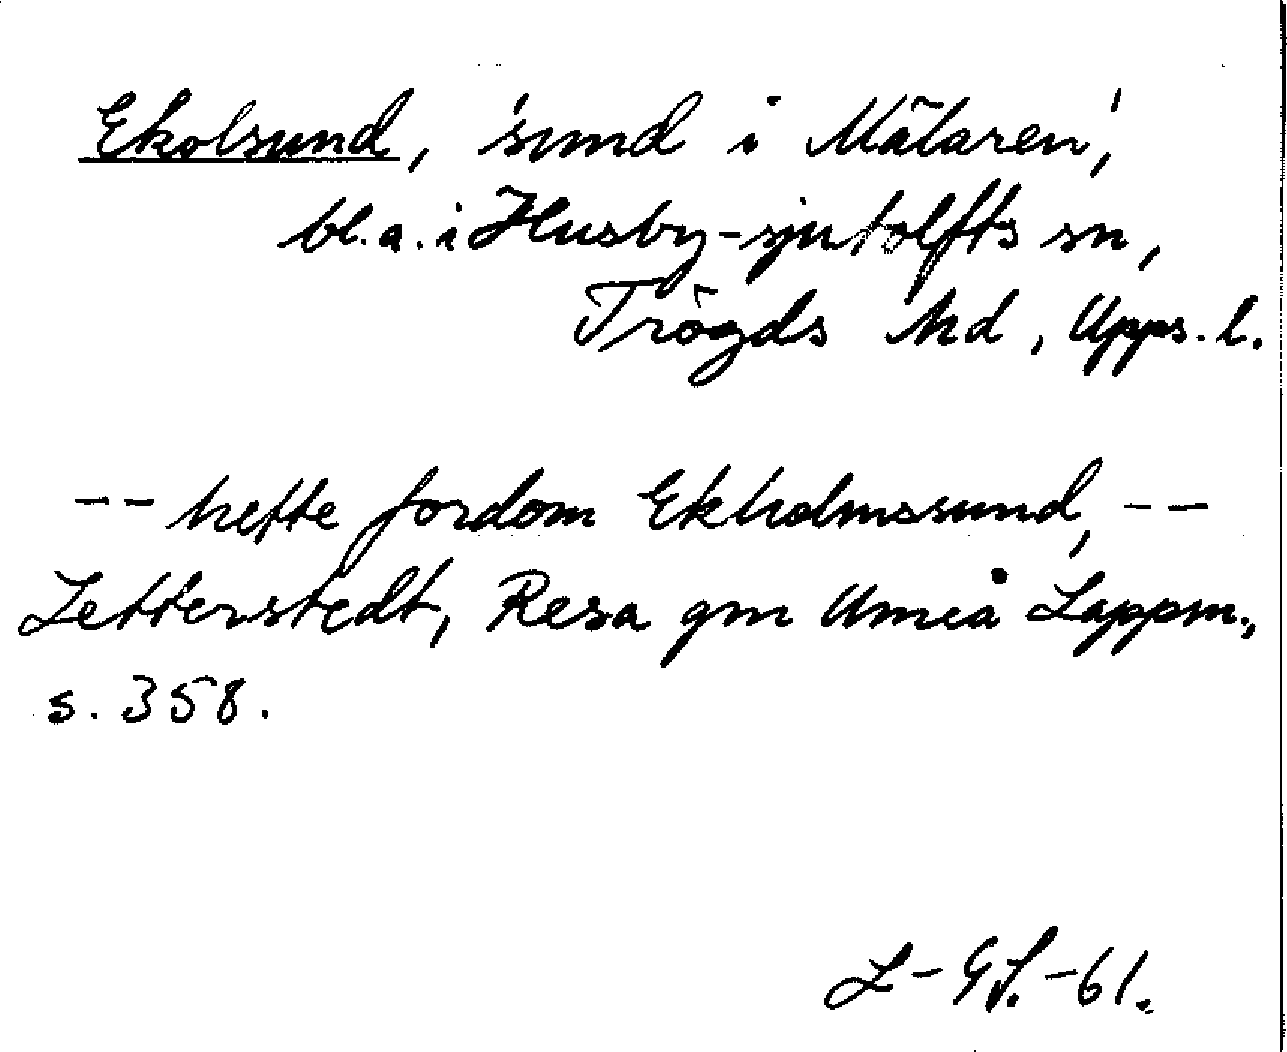 Ekolsund, 'sund i Mälaren',
bl.a. i Husby-sjutolfts sn,
Trögds hd, Upps. l.
-- hette fordom Ekholmssund, --
Zetterstedt, Resa gm Umeå Lappm.,
s. 358.
L-GL.-61.